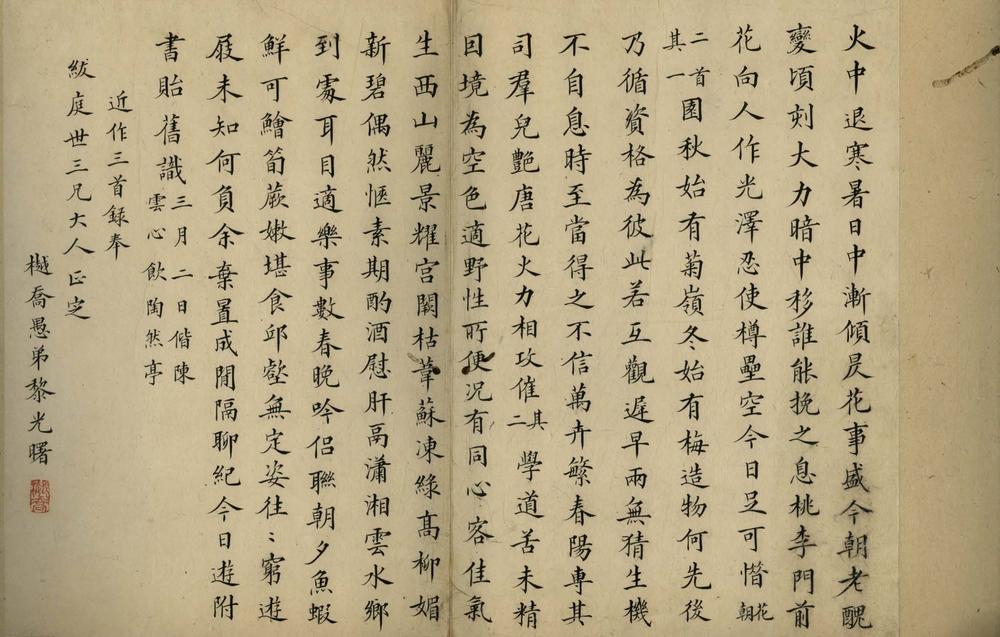 火中退寒暑日中漸傾昃花事盛今朝老醜
變頃刻大力暗中移誰能挽之息桃李門前
花向人作光澤忍使樽罍空今日足可惜花朝
二首其一園秋始有菊嶺冬始有梅造物何先後
乃循資格為彼此若互觀遲早兩無猜生機
不自息時至當得之不信萬卉繁春陽專其
司羣兒艷唐花火力相攻催其二學道苦未精
因境為空色適野性所便況有同心客佳氣
生西山麗景耀宮闕枯葦蘇凍綠高柳媚
新碧偶然愜素期酌酒慰肝鬲瀟湘雲水鄉
到處耳目適樂事數春晚吟侶聯朝夕魚蝦
鮮可鱠筍蕨嫩堪食邱壑無定姿往〻窮遊
屐未知何負余棄置成閒隔聊紀今日遊附
書貽舊識三月二日偕陳雲心飲陶然亭
近作三首録奉
紱庭世三兄大人正定
樾喬愚弟黎光曙